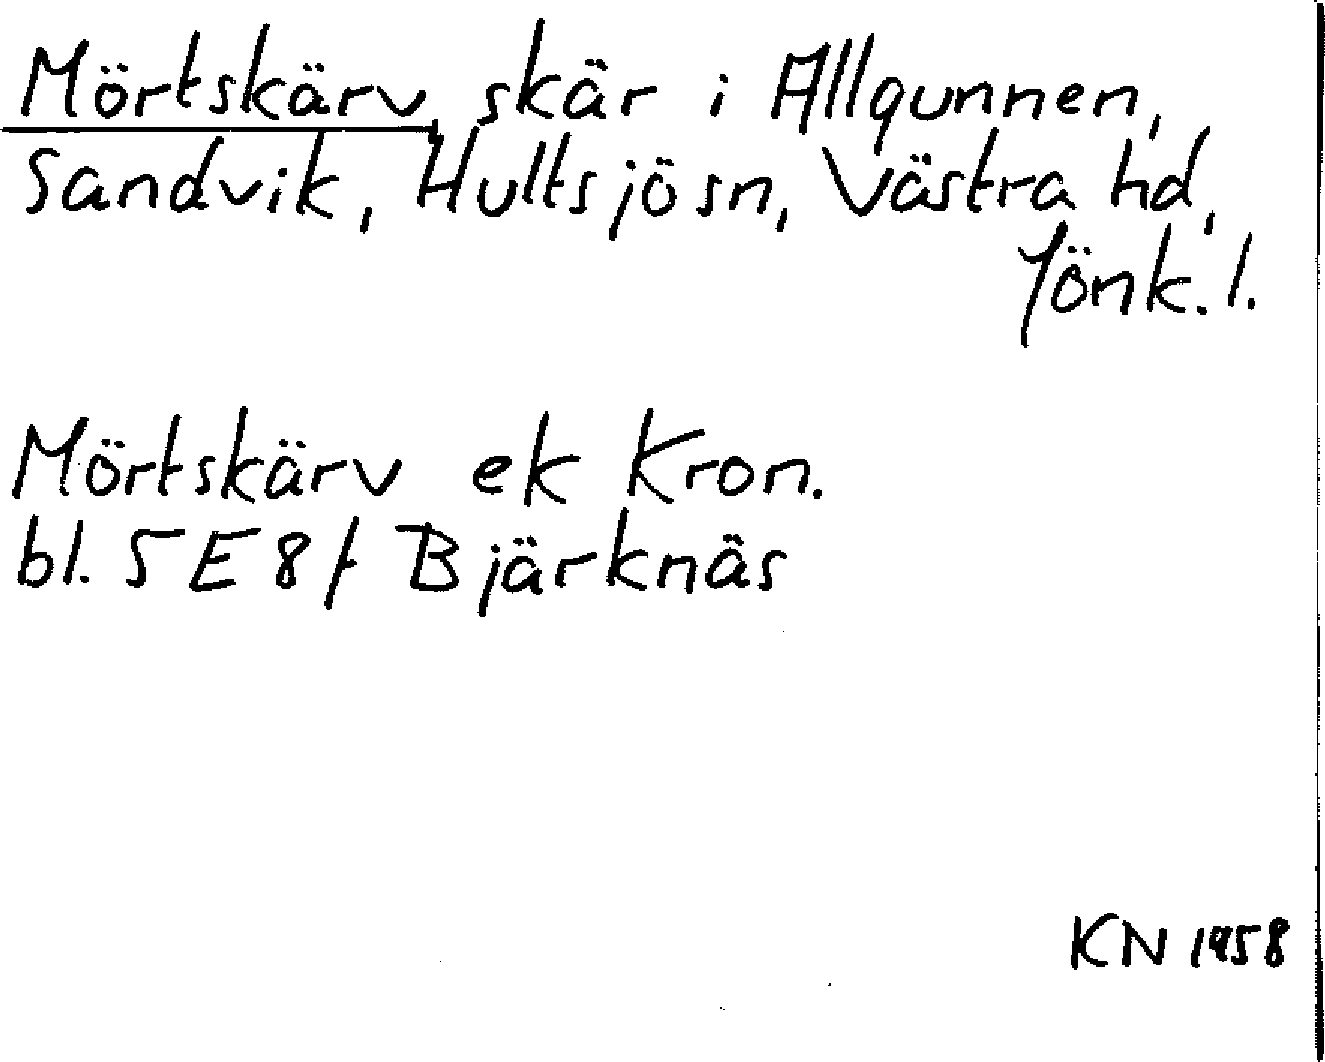 Mörtskärv, skär i Allgunnen,
Sandvik, Hultsjö sn, Västra hd,
Jönk. l.
Mörtskärv ek Kron.
bl. 5E8f Bjärknäs
KN 1958